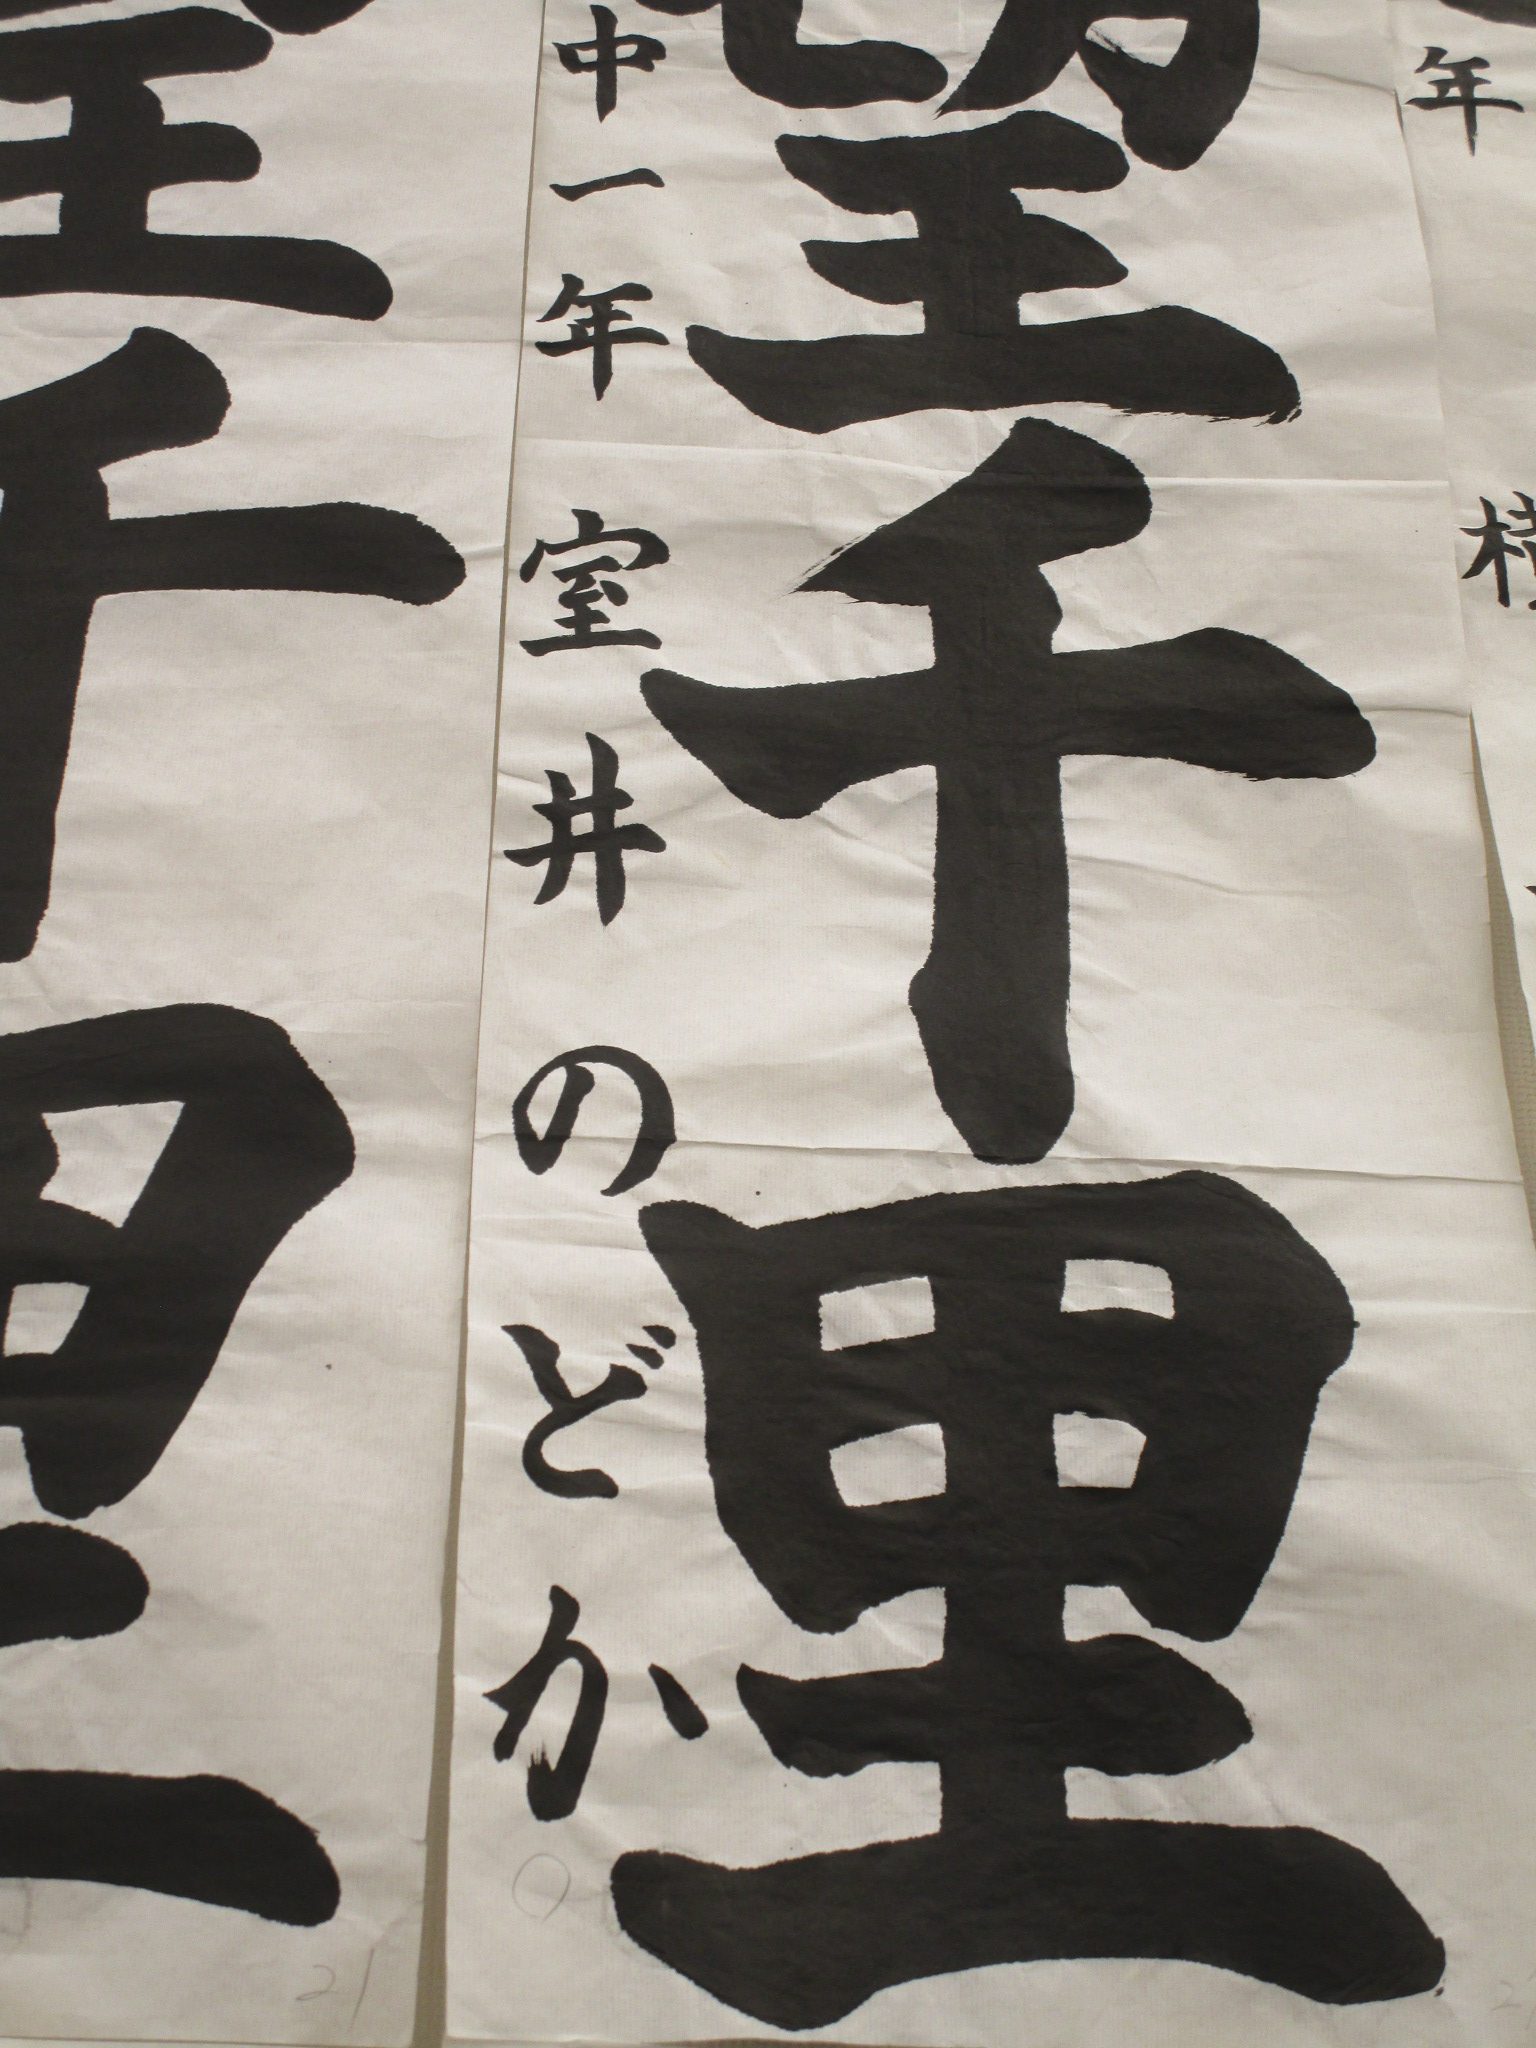 年
望千里
中一年 室井のどか
望千里
21